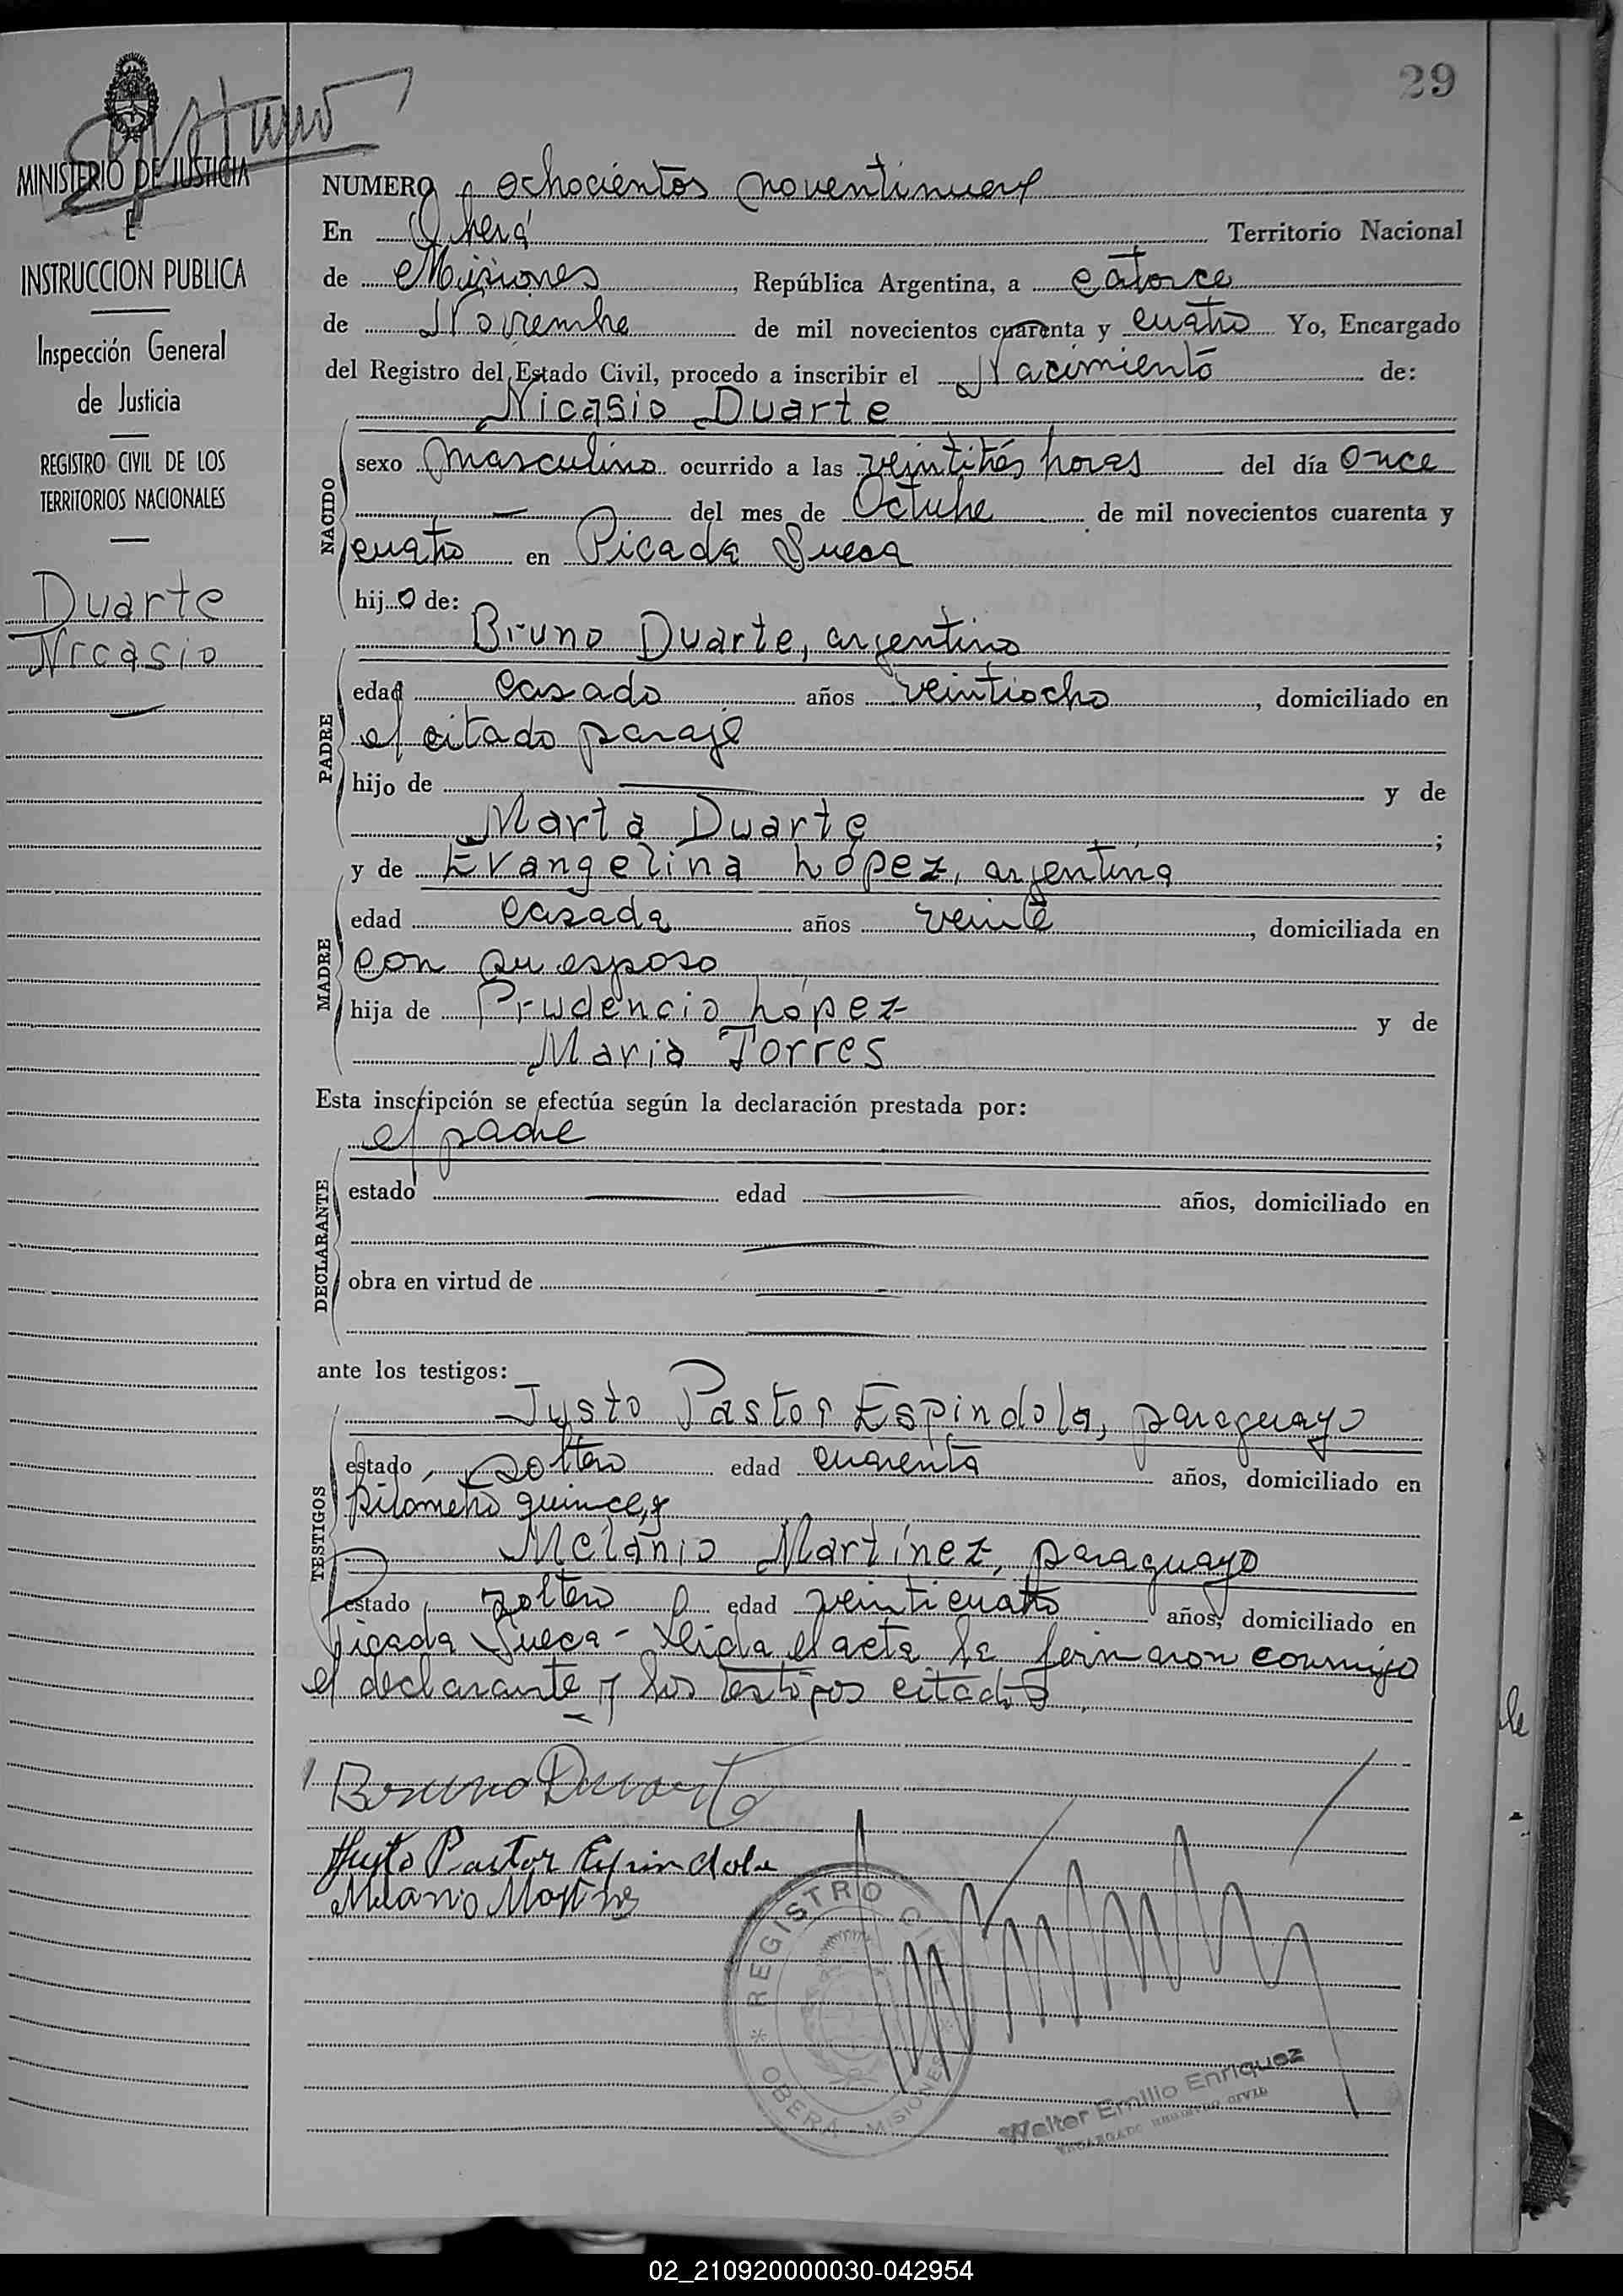 29
MINISTERIO DE JUSTICIA
E
INSTRUCCION PUBLICA
Inspección General
de Justicia
REGISTRO CIVIL DE LOS
TERRITORIOS NACIONALES
Duarte
Nicasio
NUMERO ochocientos noventinueve
En Oberá Territorio Nacional
de Misiones, República Argentina, a catorce
de Noviembre de mil novecientos cuarenta y cuatro Yo, Encargado
del Registro del Estado Civil, procedo a inscribir el Nacimiento de:
Nicasio Duarte
NACIDO
sexo masculino ocurrido a las veintitrés horas del día once
del mes de Octubre de mil novecientos cuarenta y
cuatro en Picada Sueca
hijo de:
Bruno Duarte, argentino
PADRE
edad casado años veintiocho, domiciliado en
el citado paraje
hijo de y de
Marta Duarte;
y de Evangelina López, argentina
MADRE
edad casada años veinte, domiciliada en
con su esposo
hija de Prudencio López y de
María Torres
Esta inscripción se efectúa según la declaración prestada por:
el padre
DECLARANTE
estado edad años, domiciliado en
obra en virtud de
ante los testigos:
Justo Pastor Espindola, paraguayo
TESTIGOS
estado, soltero edad cuarenta años, domiciliado en
kilometro quince, y
Melanio Martínez, paraguayo
estado, soltero edad veinticuatro años, domiciliado en
Picada Sueca - Leída el acta la firmaron conmigo
el declarante y los testigos citados.
Bruno Duarte
Justo Pastor Espindola
Melanio Martinez
REGISTRO CIVIL
OBERÁ MISIONES
Walter Emilio Enriquez
ENCARGADO REGISTRO CIVIL
02_210920000030-042954